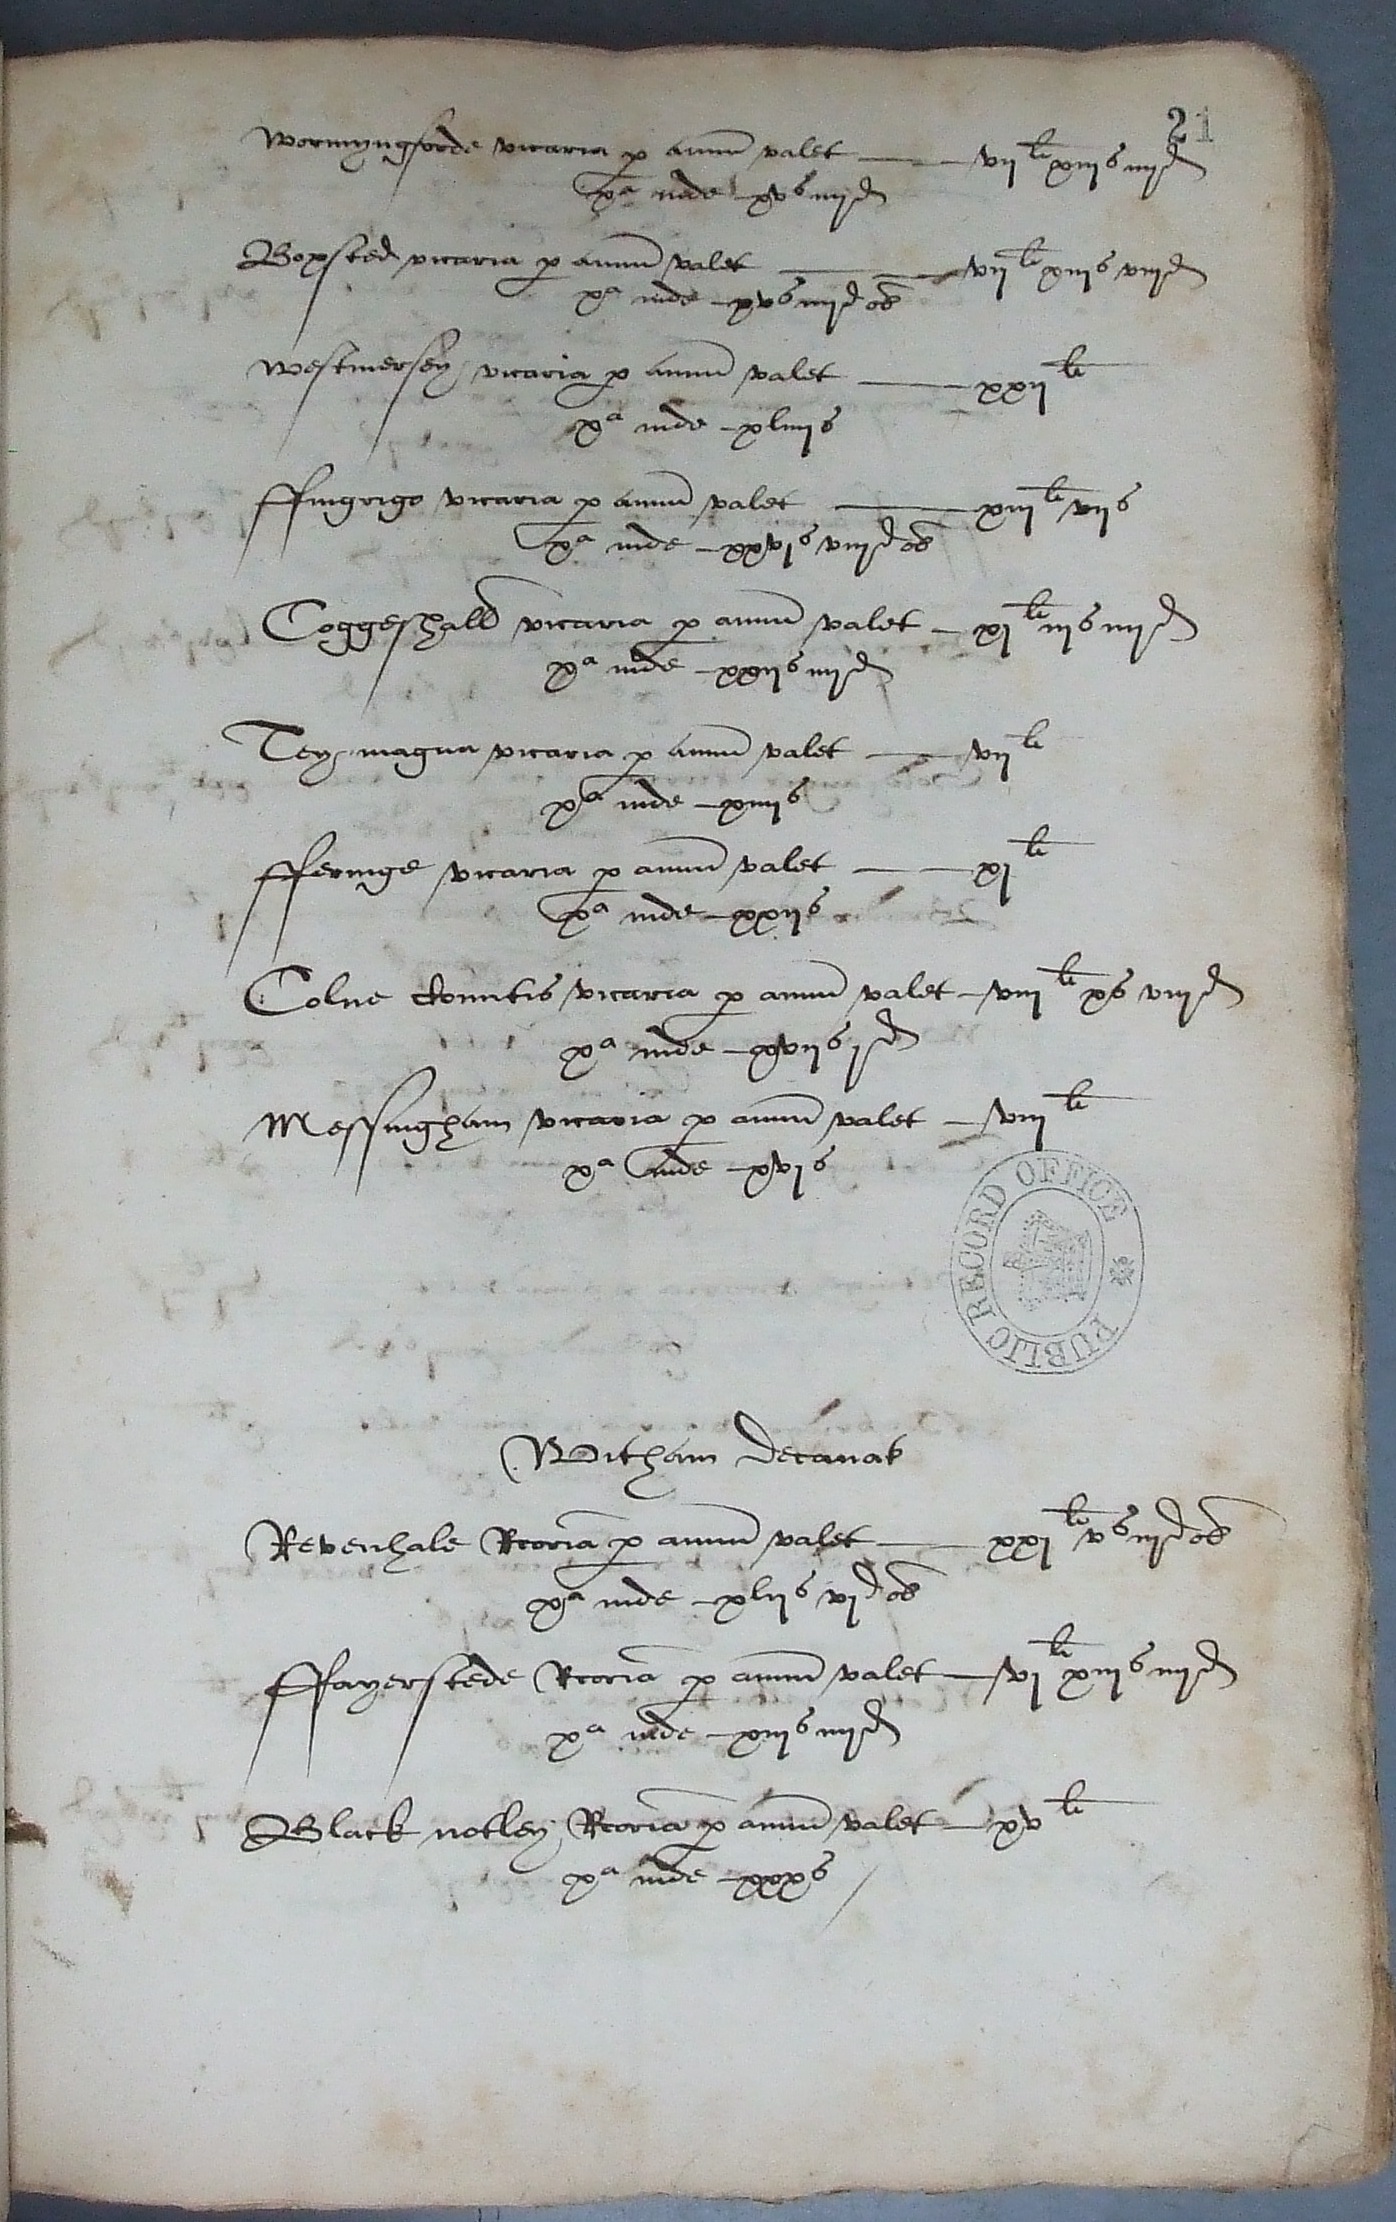 21
Wormyngforde vicaria p annu valet — vij li xiijs iiijd
xa inde — xvs iiijd
Boxsted vicaria p annu valet — vij li xiijs viijd
xa inde — xvs iiijd ob
Westmersey vicaria p annu valet — xxij li
xa inde — xliiijs
ffingrigo vicaria p annu valet — xiij li vijs
xa inde — xxvjs viijd ob
Coggeshall vicaria p annu valet — xj li iijs iiijd
xa inde — xxijs iiijd
Tey magna vicaria p annu valet — vij li
xa inde — xiiijs
fferinge vicaria p annu valet — xj li
xa inde — xxijs
Colne comitis vicaria p annu valet — viij li xs viijd
xa inde — xvijs jd
Messingham vicaria p annu valet — viij li
xa inde — xvjs
PUBLIC RECORD OFFICE
Witham Decanat
Revenhale Rcoria p annu valet — xxj li vs iiijd ob
xa inde — xlijs vjd ob
ffayerstede Rcoria p annu valet — vj li xiijs iiijd
xa inde — xiijs iiijd
Black notley Rcoria p annu valet — xv li
xa inde — xxxs